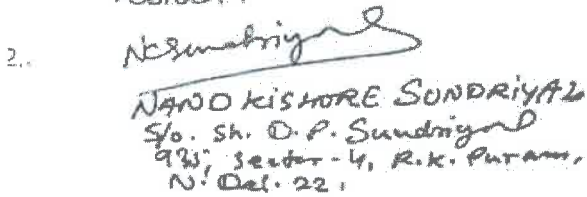 2.
NCSundriyal
NAND KISHORE SUNDRIYAL
S/o. Sh. D.P. Sundriyal
935, Sector-4, R.K. Puram,
N. Del. 22.